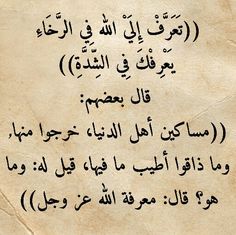 ((تَعَرَّفْ إِلَيْ الله فِي الرَّخَاءِ
يَعْرِفْكَ فِي الشِّدَّةِ))
قال بعضهم:
((مساكين أهل الدنيا، خرجوا منها,
وما ذاقوا أطيب ما فيها، قيل له: وما
هو؟ قال: معرفة الله عز وجل))